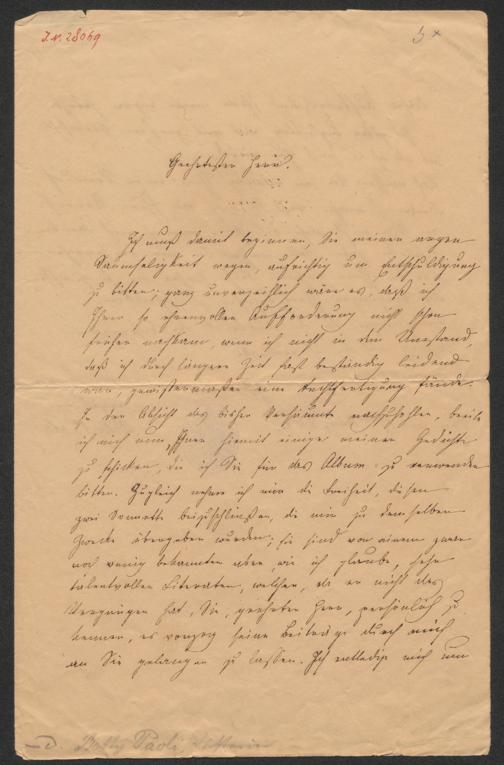 J.N. 28069
Geehrtester Herr.
Ich muß damit beginnen, Sie meiner argen
Saumseligkeit wegen, aufrichtig um Entschuldigung
zu bitten; ganz unverzeihlich wäre es, daß ich
Ihrer so ehrenvollen Aufforderung nicht schon
früher nachkam, wenn ich nicht in dem Umstand,
daß ich durch längere Zeit fast beständig leidend
war, gewissermaßen eine Rechtfertigung fände.
In der Absicht das bisher Versäumte nachzuholen, beeile
ich mich nun, Ihnen hiemit einige meiner Gedichte
zu schicken, die ich Sie für das Album zu verwenden
bitte. Zugleich nehme ich mir die Freiheit, diesen
zwei Sonnette beizuschließen, die mir zu demselben
Zwecke übergeben wurden; sie sind von einem zwar
noch wenig bekannten aber, wie ich glaube, sehr
talentvollen Literaten, welcher, da er nicht das
Vergnügen hat, Sie, geehrter Herr, persönlich zu
kennen, es vorzog seine Beiträge durch mich
an Sie gelangen zu lassen. Ich entledige mich um
Betty Paoli